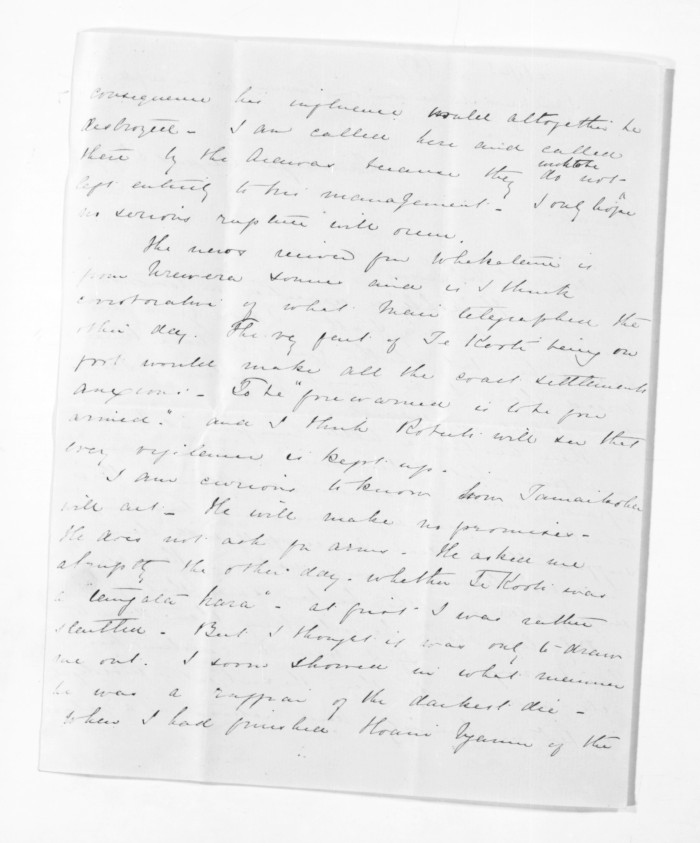 consequence his influence would altogether be
destroyed - I am called here and called
there by the Arawas because they do not
wish to be
left entirely to his management - I only hope
no serious rupture will occur.
The news received from Whakatane is
from Urewera sources and is I think
corroborative of what Mair telegraphed the
other day. The very fact of Te Kooti being on
foot would make all the coast settlements
anxious - To be "forewarned is to be fore
armed." and I think Roberts will see that
every vigilance is kept up -
I am curious to know how Tamaikoha
will act - He will make no promises -
He does not ask for arms - He asked me
abruptly the other day - whether Te Kooti was
a "tangata hara" - at first I was rather
startled - But I thought it was only to draw
me out. I soon showed in what manner
he was a ruffian of the darkest die -
When I had finished Hoani of the